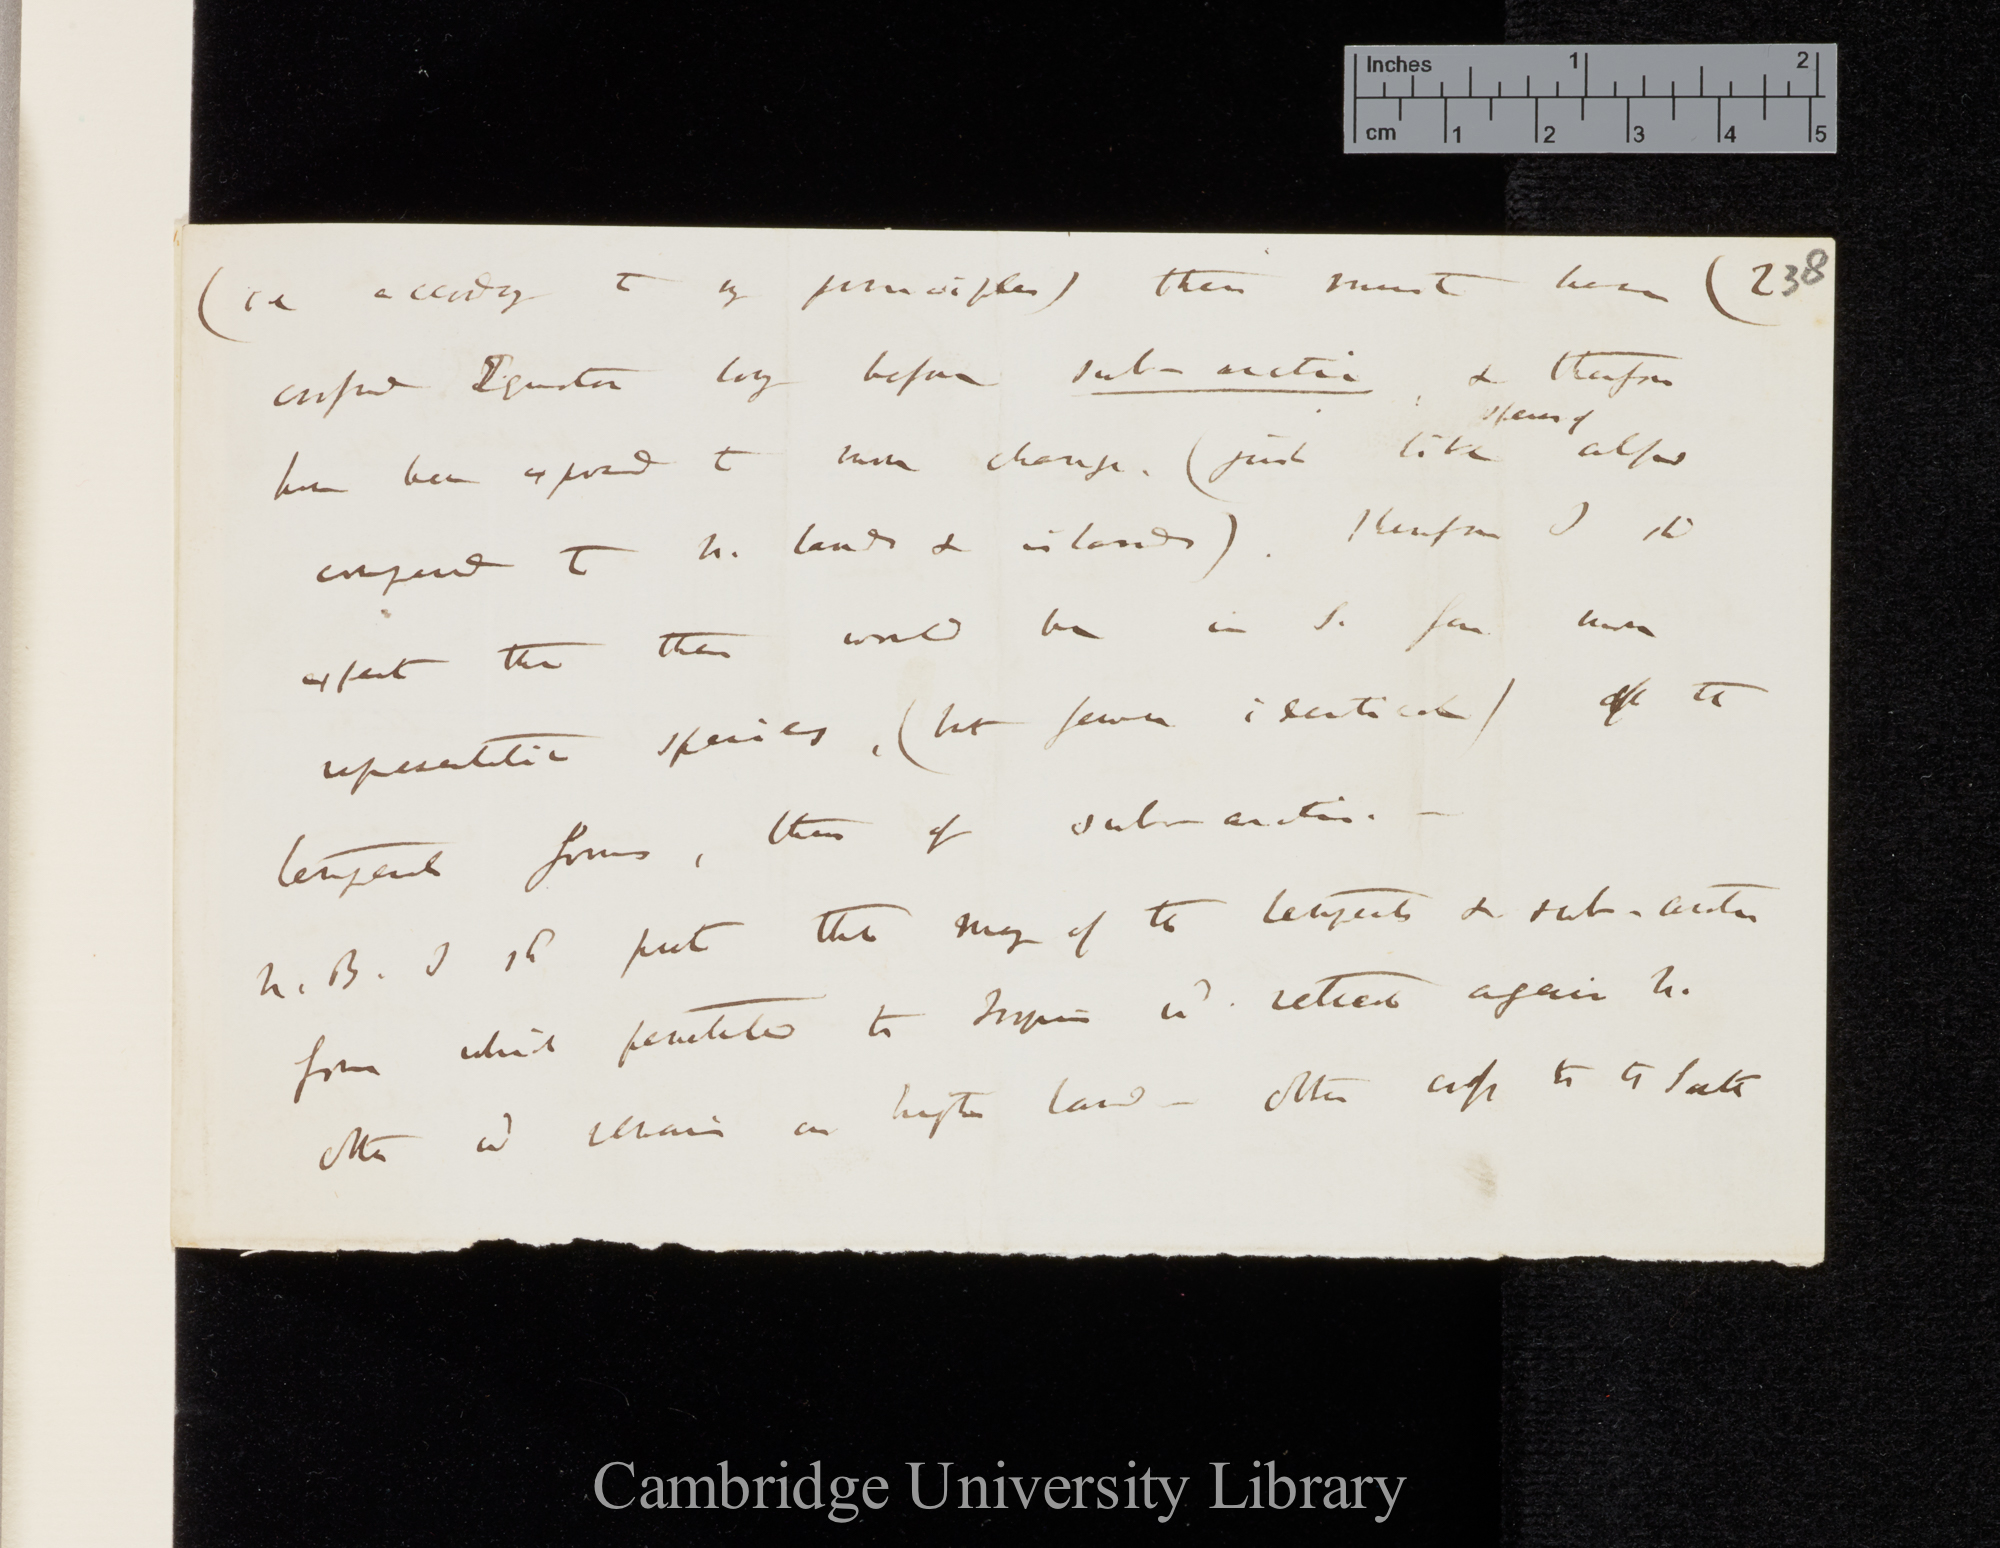 Inches 1 2
cm 1 2 3 4 5
(ie according to my principles) these must have (238
crossed Equator long before sub-arctic, & therefore
have been exposed to more change. (just like species of alpine
compared to N. lands & islands). Therefore I shd
expect that there would be in S. far more
representative species, (but fewer identical) of the
temperate forms, than of sub-arctic. —
N.B. I shd put that many of the temperate & sub-arctic
forms which penetrated the Tropics wd. retreat again N.
others wd remain on higher land — others cross to the South
Cambridge University Library